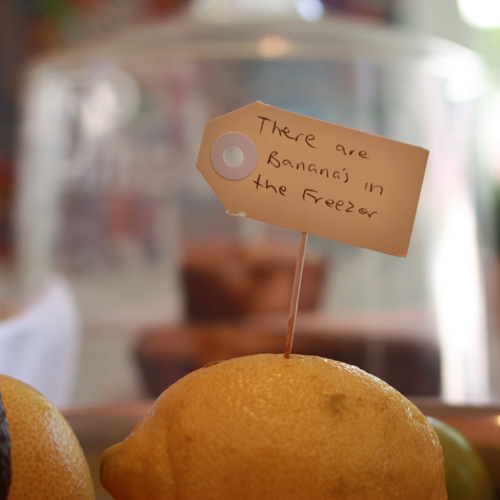 There are
Banana's in
the Freezer